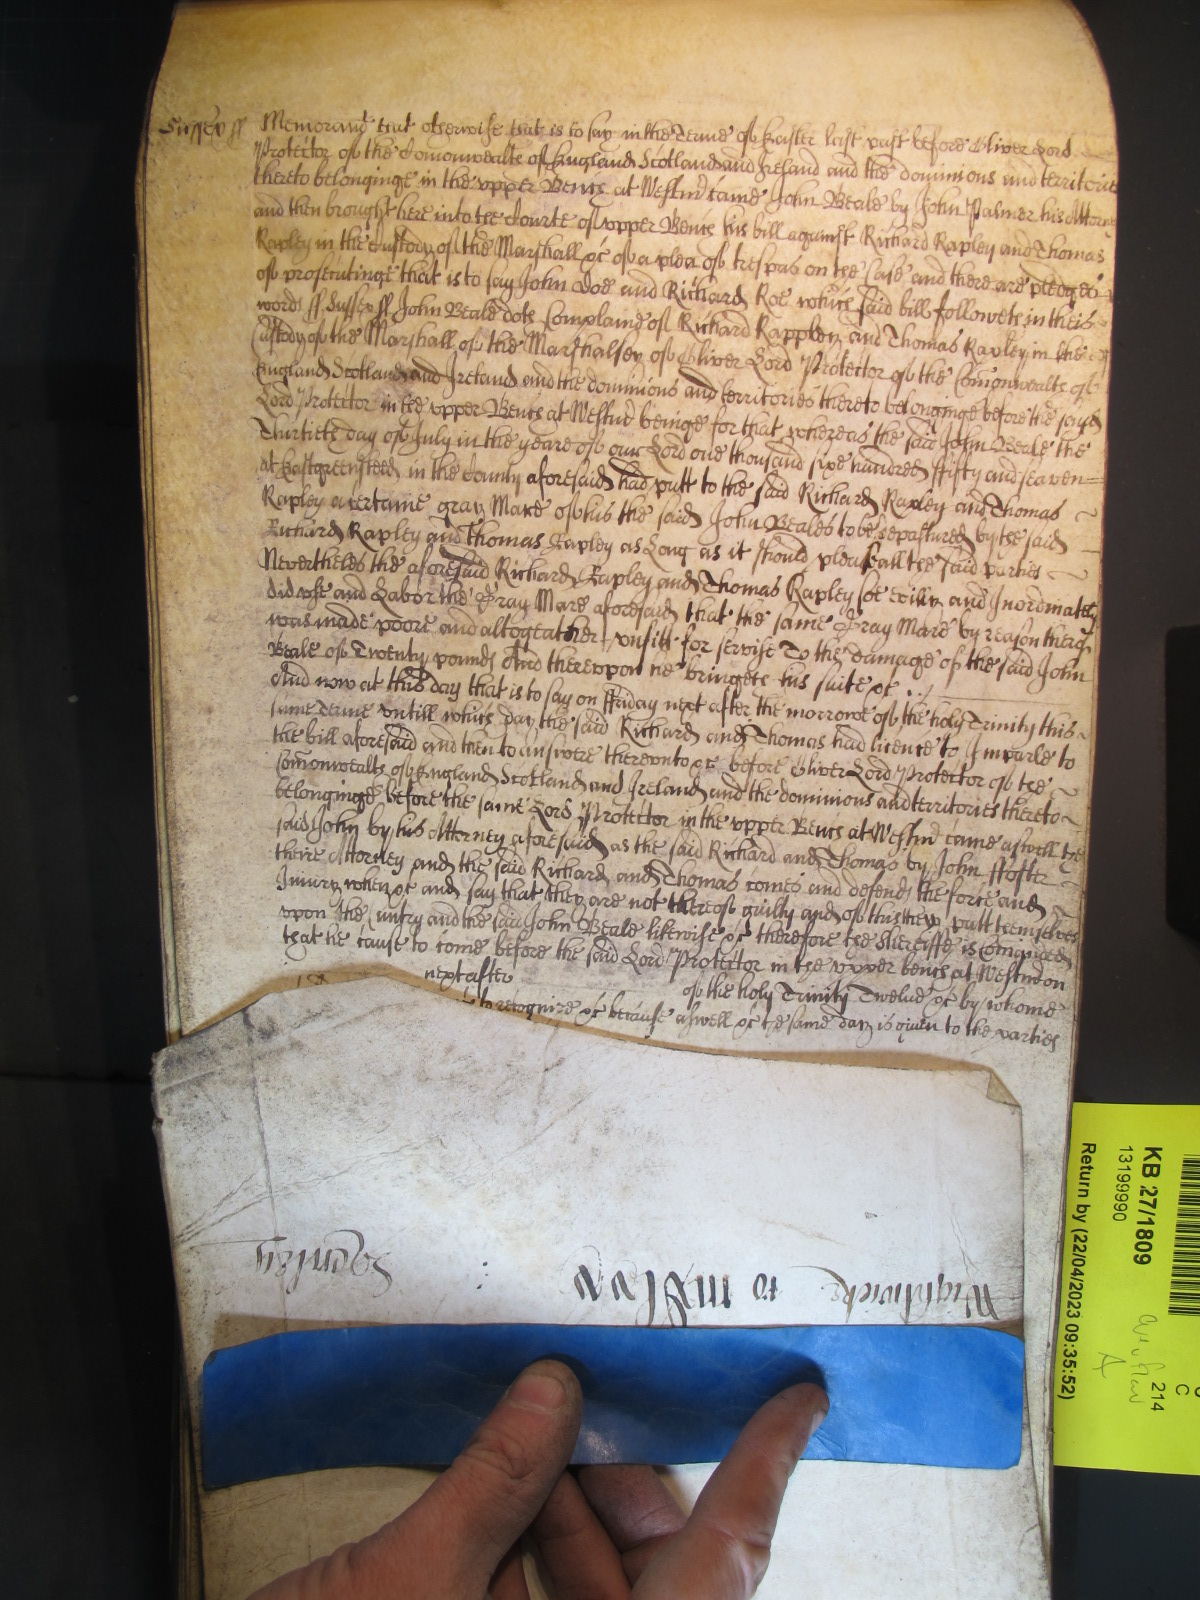 Sussex ss Memorand that otherwise that is to say in the Terme of Easter last past before Oliver Lord
Protector of the Comonwealth of England Scotland and Ireland and the dominions and territories
thereto belonginge in the upper Bench at Westmr came John Beale by John Palmer his Attorn
and then brought here into the Courte of upper Bench his bill against Richard Rapley and Thomas
Rapley in the Custody of the Marshall &c of a plea of trespas on the Case and there are pledges
of prosecutinge that is to say John Doe and Richard Roe which said bill followeth in theis
words ss Sussex ss John Beale doth Complaine of Richard Rappley and Thomas Rapley in the
Custody of the Marshall of the Marshalsey of Oliver Lord Protector of the Comonwealth of
England Scotland and Ireland and the dominions and territories thereto belonginge before the sayd
Lord Protector in the upper Bench at Westmr beinge for that whereas the said John Beale the
Thirtieth day of July in the yeare of our Lord one thousand sixe hundred ffifty and seaven
at Eastgreensteed in the County aforesaid had putt to the said Richard Rapley and Thomas
Rapley a certaine gray Mare of his the said John Beales to be depastured by the said
Richard Rapley and Thomas Rapley as Long as it should please all the said parties
Nevertheles the aforesaid Richard Rapley and Thomas Rapley soe evilly and Inordinately
did use and Labor the Gray Mare aforesaid that the same Gray Mare by reason thereof
was made poore and altogeather unfitt for servise To the damage of the said John
Beale of Twenty pounds And thereupon he bringeth his suite &c
And now at this day that is to say on ffriday next after the morrowe of the holy Trinity this
same Terme untill which day the said Richard and Thomas had licence to Imparle to
the bill aforesaid and then to answere thereunto &c before Oliver Lord Protector of the
Comonwealth of England Scotland and Ireland and the dominions and territories thereto
belonginge before the same Lord Protector in the upper Bench at Westmr came aswell the
said John by his Attorney aforesaid as the said Richard and Thomas by John ffoster
theire Attorney and the said Richard and Thomas comes and defends the force and
Iniury when &c and say that they are not thereof guilty and of this they putt themselves
upon the Cuntry and the said John Beale likewise &c therefore the Sheriffe is Comanded
that he cause to come before the said Lord Protector in the upper bench at Westm on
next after of the holy Trinity Twelve &c by whome
to recognize &c because aswell &c the same day is given to the parties
Wightwicke to Mslow : Henley
KB 27/1809
13199990
214
C
A
Return by (22/04/2023 09:35:52)